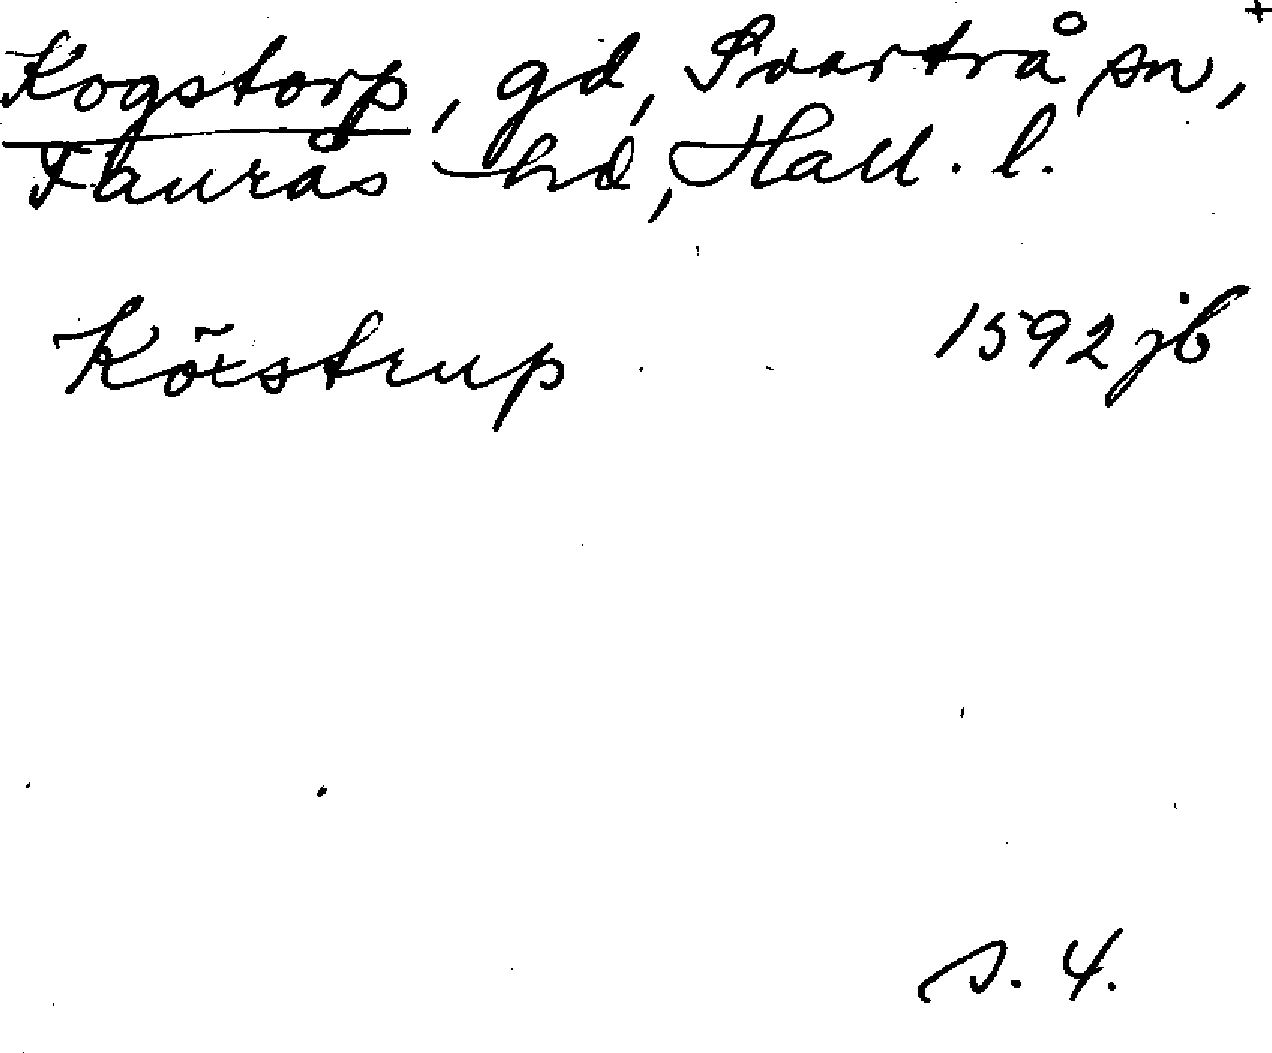 +
Kogstorp, gd, Svartrå sn,
Faurås hd, Hall. l.
Köxstrup 1592 jb
s. 4.